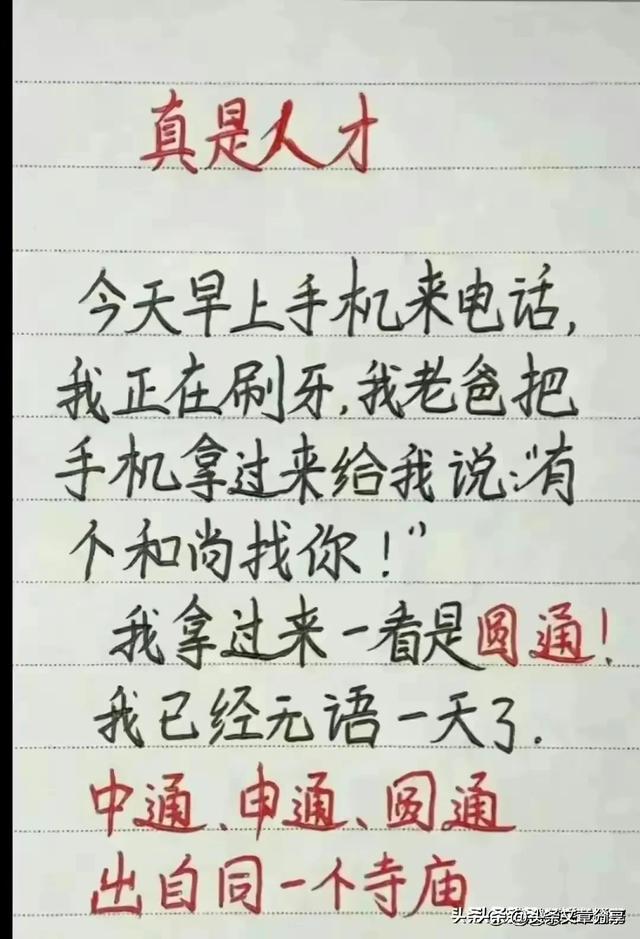 真是人才
今天早上手机来电话,
我正在刷牙,我老爸把
手机拿过来给我说:“有
个和尚找你!”
我拿过来一看是圆通!
我已经无语一天了.
中通、申通、圆通
出自同一个寺庙